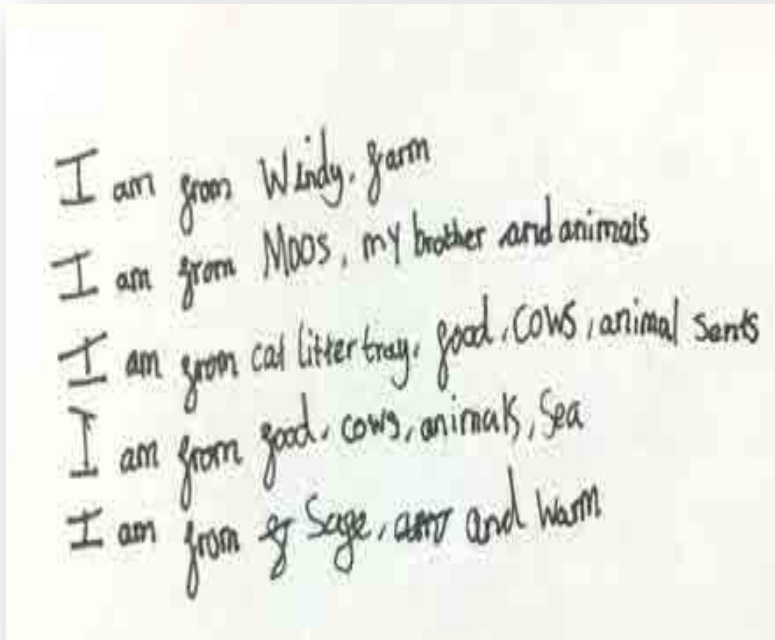 I am from Windy. farm
I am from Moos, my brother and animals
I am from cat litter tray, food, cows, animal sents
I am from food, cows, animals, Sea
I am from Safe, and warm